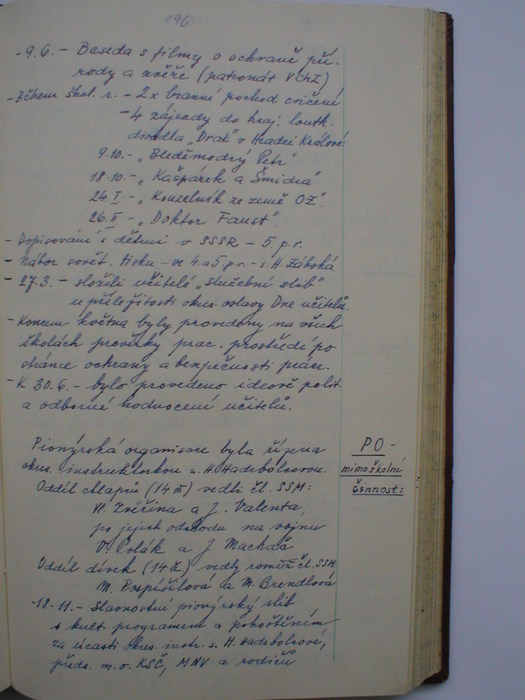 196
- 9.6. - Baseda s filmy o ochraně pří-
rody a zvěře (patronát VČHZ)
- Během škol. r. - 2x branné pochod. cvičení
- 4 zájezdy do kraj. loutk.
divadla "Drak" v Hradci Králové:
9.10. - "Bleděmodrý Petr"
18.10. - "Kašpárek a Šmidra"
24.I - "Kouzelník ze země OZ".
26.II - "Doktor Faust".
- Dopisování s dětmi v SSSR - 5. p.r.
- Nábor sovět. tisku - ve 4. a 5. p.r. - s. H. Zábská
- 27.3. - složili učitelé "služební slib"
u příležitosti okres. oslavy Dne učitelů.
- Koncem května byly provedeny na všech
školách prověrky prac. prostředí po
stránce ochrany a bezpečnosti prác.
- K 30.6. - bylo provedeno ideově polit.
a odborné hodnocení učitelů.
Pionýrská organisace byla řízena
okres. instruktorkou s. H.
Oddíl chlapců (14 ) vedli čl. SSM:
a J. Valenta,
po jejich odchodu na vojnu
V. Polák a J. Machač
Oddíl dívek (14 ) vedly rovněž čl. SSM
M. Pospíšilová a M. Brendlová
- 18.11. - slavnostní pionýrský slib
s kult. programem a pohoštěním
za účasti okres. instr. s. H.
předs. m.o. KSČ, MNV a rodičů
PO -
mimoškolní
činnost: